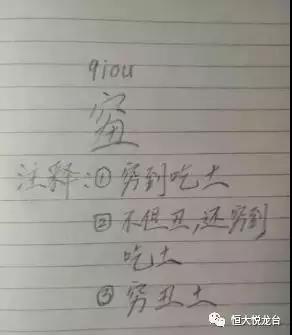 qiou
注释:①穷到吃土
②不但丑,还穷到
吃土
③穷丑土
恒大悦龙台